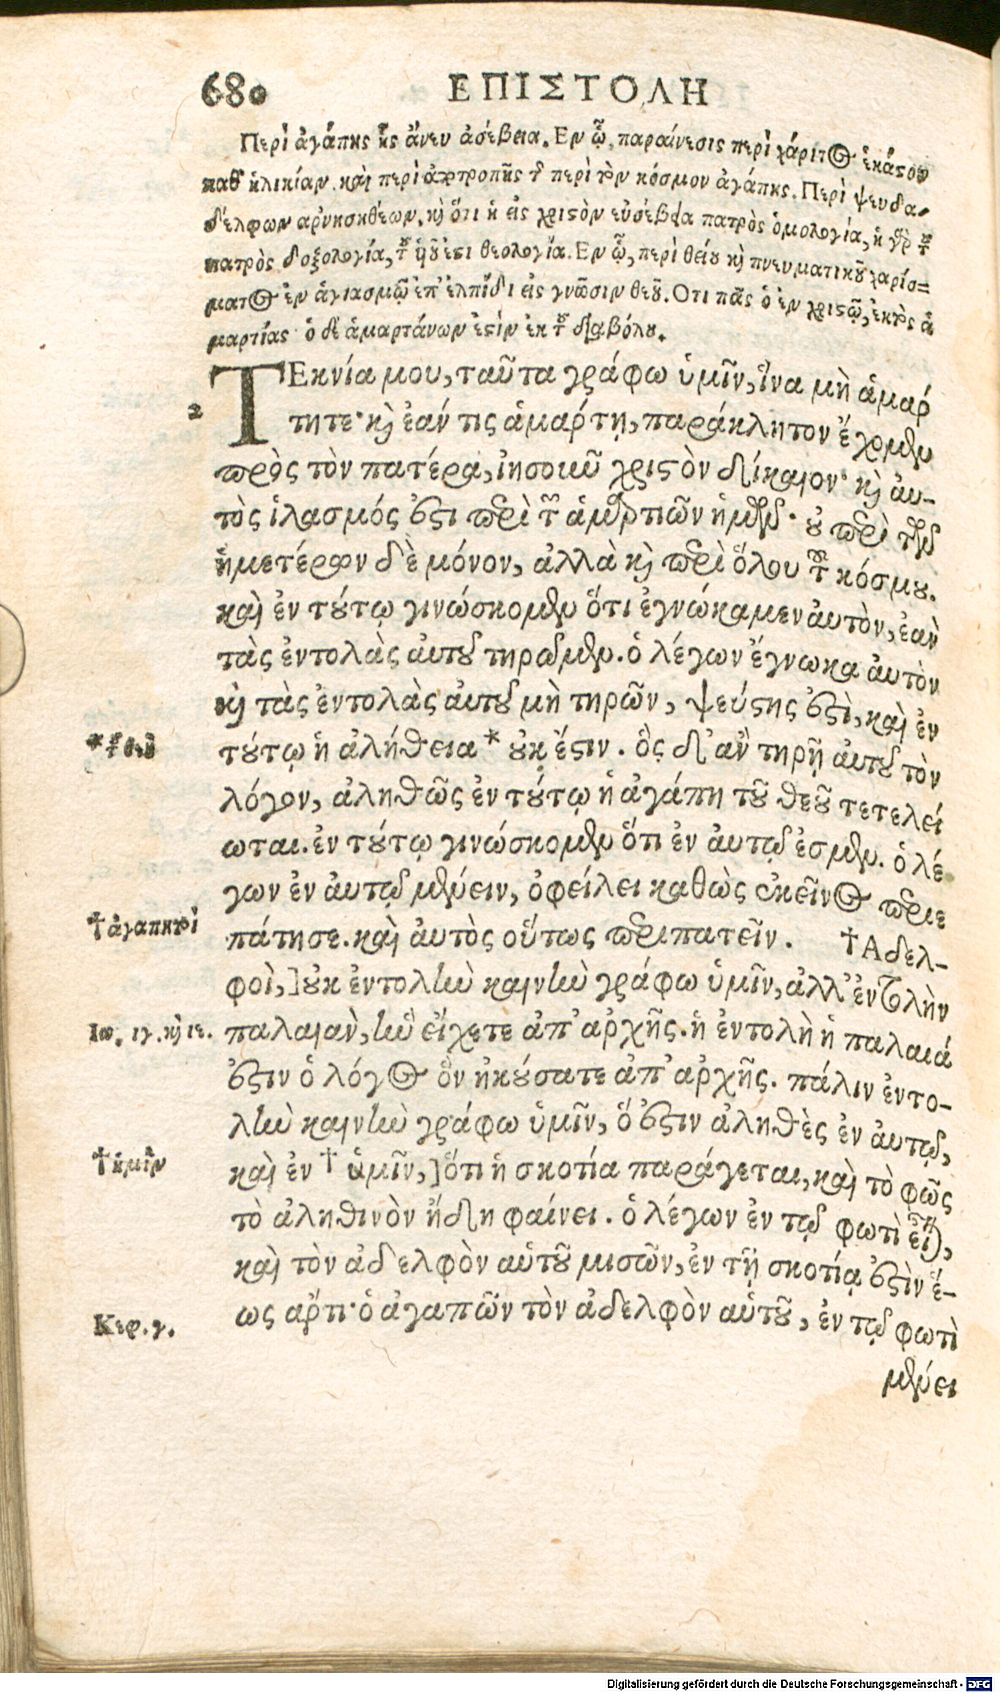 680 ΕΠΙΣΤΟΛΗ
Περὶ ἀγάπης ἧς ἄνευ ἀσέβεια. Εν ᾧ, παραίνεσις περὶ χάριτος ἑκάστου
καθ' ἡλικίαν. καὶ περὶ ἀποτροπῆς τῆς περὶ τὸν κόσμον ἀγάπης. Περὶ ψευδα-
δέλφων ἀρνησιθέων. καὶ ὅτι ἡ εἰς χριστὸν εὐσέβεια πατρὸς ὁμολογία, ἡ γὰρ τοῦ
πατρὸς δοξολογία, τοῦ ἡοῦ ἐστι θεολογία. Εν ᾧ, περὶ θείου καὶ πνευματικοῦ χαρίσ-
ματος ἐν ἁγιασμῷ ἐπ' ἐλπίδι εἰς γνῶσιν θεοῦ. Οτι πᾶς ὁ ἐν χριστῷ, ἐκτὸς ἁ
μαρτίας· ὁ δὲ ἁμαρτάνων ἐστὶν ἐκ τοῦ διαβόλου.
2 ΤΕκνία μου, ταῦτα γράφω ὑμῖν, ἵνα μὴ ἁμάρ
τητε· καὶ ἐάν τις ἁμάρτῃ, παράκλητον ἔχομεν
πρὸς τὸν πατέρα, ἰησοιῶ χριστὸν δίκαιον· καὶ ἀυ-
τὸς ἱλασμός ἐστι περὶ τῶν ἁμαρτιῶν ἡμῶν· οὐ περὶ τῶν
ἡμετέρων δὲ μόνον, ἀλλὰ καὶ περὶ ὅλου τοῦ κόσμου.
καὶ ἐν τούτῳ γινώσκομεν ὅτι ἐγνώκαμεν ἀυτὸν, ἐὰν
τὰς ἐντολὰς ἀυτοῦ τηρῶμεν. ὁ λέγων ἔγνωκα ἀυτὸν
καὶ τὰς ἐντολὰς ἀυτοῦ μὴ τηρῶν, ψεύστης ἐστὶ, καὶ ἐν
*τοῦ θεοῦ τούτῳ ἡ ἀλήθεια* οὐκ ἔστιν. ὃς δ' ἂν τηρῇ ἀυτοῦ τὸν
λόγον, ἀληθῶς ἐν τούτῳ ἡ ἀγάπη τοῦ θεοῦ τετελεί
ωται. ἐν τούτῳ γινώσκομεν ὅτι ἐν ἀυτῷ ἐσμεν. ὁ λέ
γων ἐν ἀυτῷ μένειν, ὀφείλει καθὼς ἐκεῖνος περιε
†ἀγαπητοὶ πάτησε. καὶ ἀυτὸς οὕτως περιπατεῖν. †Αδελ-
φοὶ,] οὐκ ἐντολὴν καινὴν γράφω ὑμῖν, ἀλλ' ἐντολὴν
Ιω. ιγ. καὶ ιε. παλαιὰν, ἣν εἴχετε ἀπ' ἀρχῆς. ἡ ἐντολὴ ἡ παλαιά
ἐστιν ὁ λόγος ὃν ἠκούσατε ἀπ' ἀρχῆς. πάλιν ἐντο-
λὴν καινὴν γράφω ὑμῖν, ὅ ἐστιν ἀληθὲς ἐν ἀυτῷ,
†ἡμῖν καὶ ἐν † ὑμῖν,] ὅτι ἡ σκοτία παράγεται, καὶ τὸ φῶς
τὸ ἀληθινὸν ἤδη φαίνει. ὁ λέγων ἐν τῷ φωτὶ εἶναι,
καὶ τὸν ἀδελφὸν αὑτοῦ μισῶν, ἐν τῇ σκοτίᾳ ἐστὶν ἕ-
Κεφ. γ. ως ἄρτι· ὁ ἀγαπῶν τὸν ἀδελφὸν αὑτοῦ, ἐν τῷ φωτὶ
μένει
Digitalisierung gefördert durch die Deutsche Forschungsgemeinschaft - DFG